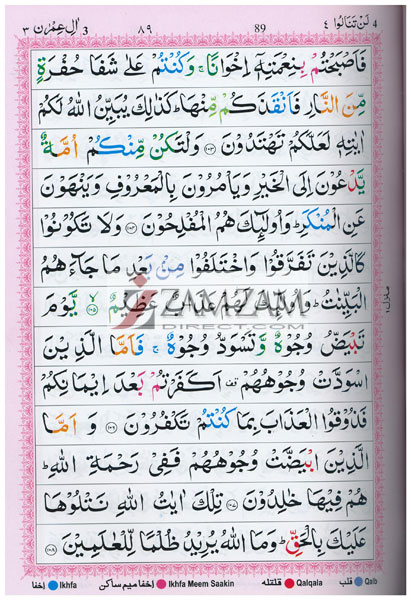 4 لَنْ تَنَالُوا ٤ 89 ٨٩ 3 اٰلِ عِمْرٰن ٣
فَاَصْبَحْتُمْ بِنِعْمَتِهٖۤ اِخْوَانًا ۚ وَكُنْتُمْ عَلٰى شَفَا حُفْرَةٍ
مِّنَ النَّارِ فَاَنْقَذَكُمْ مِّنْهَا ؕ كَذٰلِكَ يُبَيِّنُ اللّٰهُ لَكُمْ
اٰيٰتِهٖ لَعَلَّكُمْ تَهْتَدُوْنَ ﴿١٠٣﴾ وَلْتَكُنْ مِّنْكُمْ اُمَّةٌ
يَّدْعُوْنَ اِلَى الْخَيْرِ وَيَاْمُرُوْنَ بِالْمَعْرُوْفِ وَيَنْهَوْنَ
عَنِ الْمُنْكَرِ ؕ وَاُولٰٓئِكَ هُمُ الْمُفْلِحُوْنَ ﴿١٠٤﴾ وَلَا تَكُوْنُوْا
كَالَّذِيْنَ تَفَرَّقُوْا وَاخْتَلَفُوْا مِنْۢ بَعْدِ مَا جَآءَهُمُ
الْبَيِّنٰتُ ؕ وَاُولٰٓئِكَ لَهُمْ عَذَابٌ عَظِيْمٌ ﴿١٠٥﴾ يَّوْمَ
تَبْيَضُّ وُجُوْهٌ وَّتَسْوَدُّ وُجُوْهٌ ۚ فَاَمَّا الَّذِيْنَ
اسْوَدَّتْ وُجُوْهُهُمْ اَكَفَرْتُمْ بَعْدَ اِيْمَانِكُمْ
فَذُوْقُوا الْعَذَابَ بِمَا كُنْتُمْ تَكْفُرُوْنَ ﴿١٠٦﴾ وَاَمَّا
الَّذِيْنَ ابْيَضَّتْ وُجُوْهُهُمْ فَفِيْ رَحْمَةِ اللّٰهِ ؕ
هُمْ فِيْهَا خٰلِدُوْنَ ﴿١٠٧﴾ تِلْكَ اٰيٰتُ اللّٰهِ نَتْلُوْهَا
عَلَيْكَ بِالْحَقِّ ؕ وَمَا اللّٰهُ يُرِيْدُ ظُلْمًا لِّلْعٰلَمِيْنَ ﴿١٠٨﴾
منزل ١
ZAMZAM
DIRECT.COM
قلب Qalb قلقله Qalqala اخفا ميم ساكن Ikhfa Meem Saakin اخفا Ikhfa